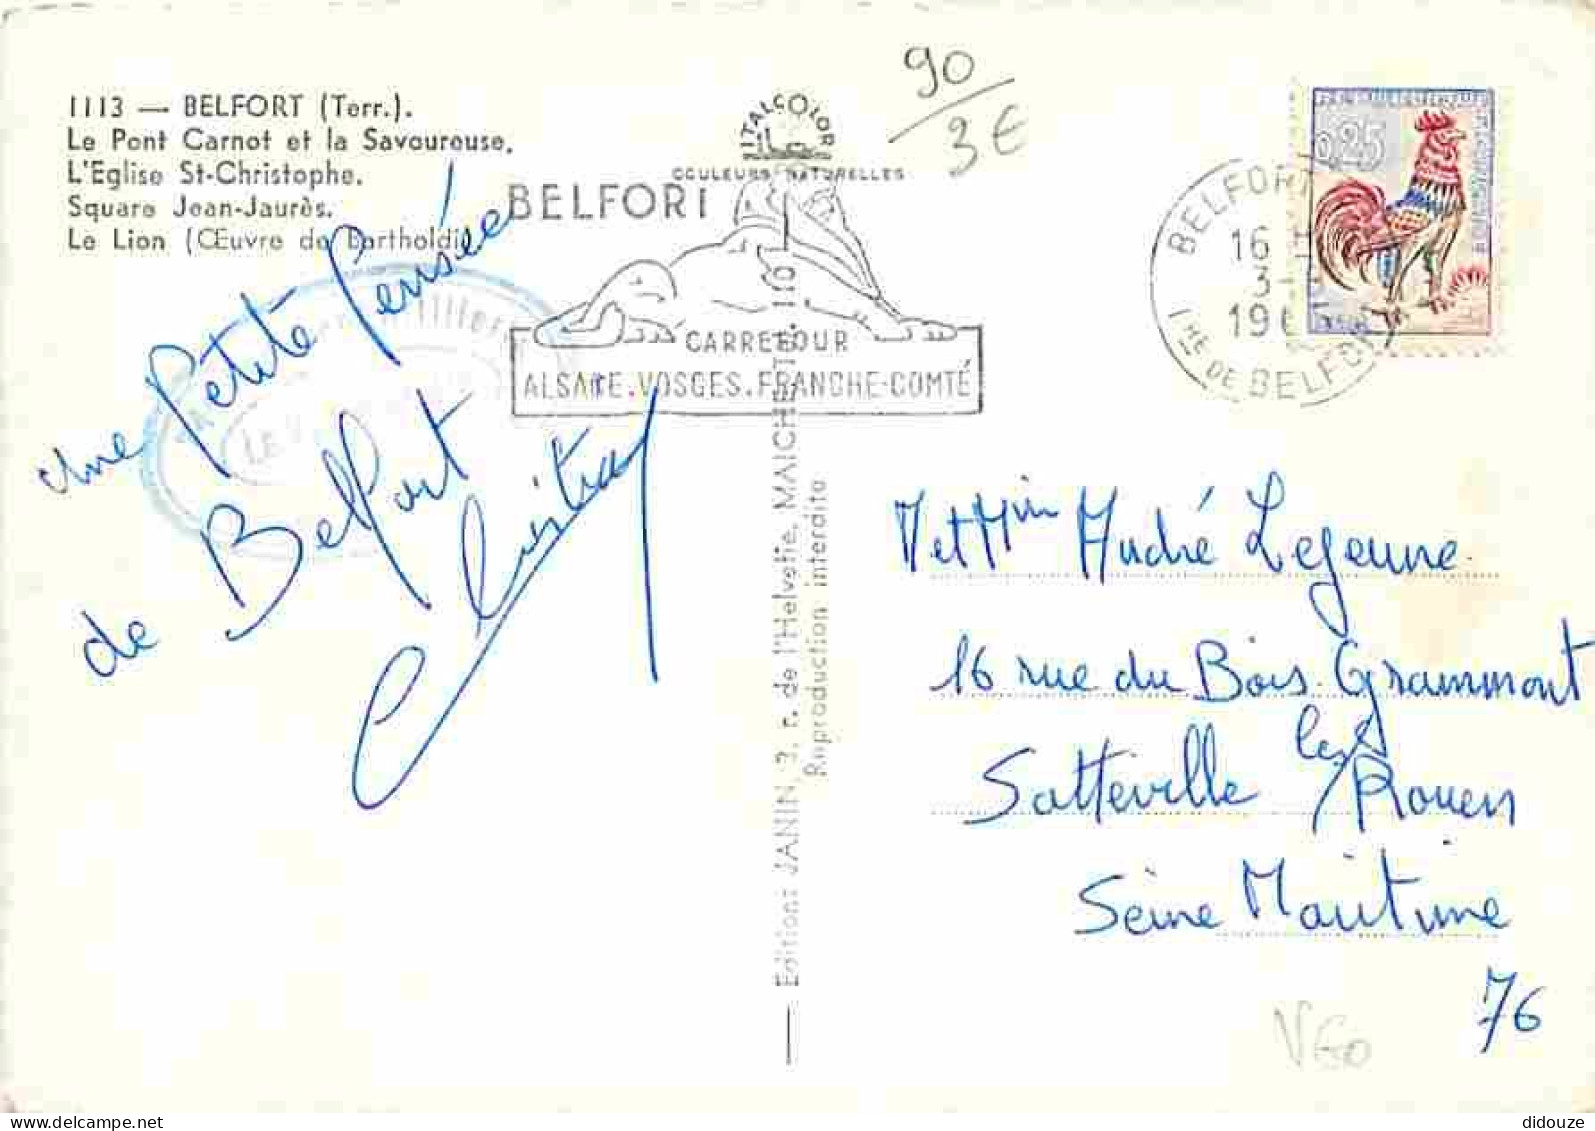 1113 — BELFORT (Terr.).
Le Pont Carnot et la Savoureuse.
L'Eglise St-Christophe.
Square Jean-Jaurès.
Le Lion (Œuvre de Bartholdi)
ITALCOLOR
COULEURS NATURELLES
90
3€
BELFORT
CARREFOUR
ALSACE.VOSGES.FRANCHE-COMTÉ
BELFORT
16
3
196
DE BELFORT
0,25
Une Petite Pensée
de Belfort
Editions JANIN, 3, r. de l'Helvétie, MAICHE
Reproduction interdite
André Lejeune
16 rue du Bois Grammont
Sotteville les Rouen
Seine Maritime
76
delcampe.net
didouze